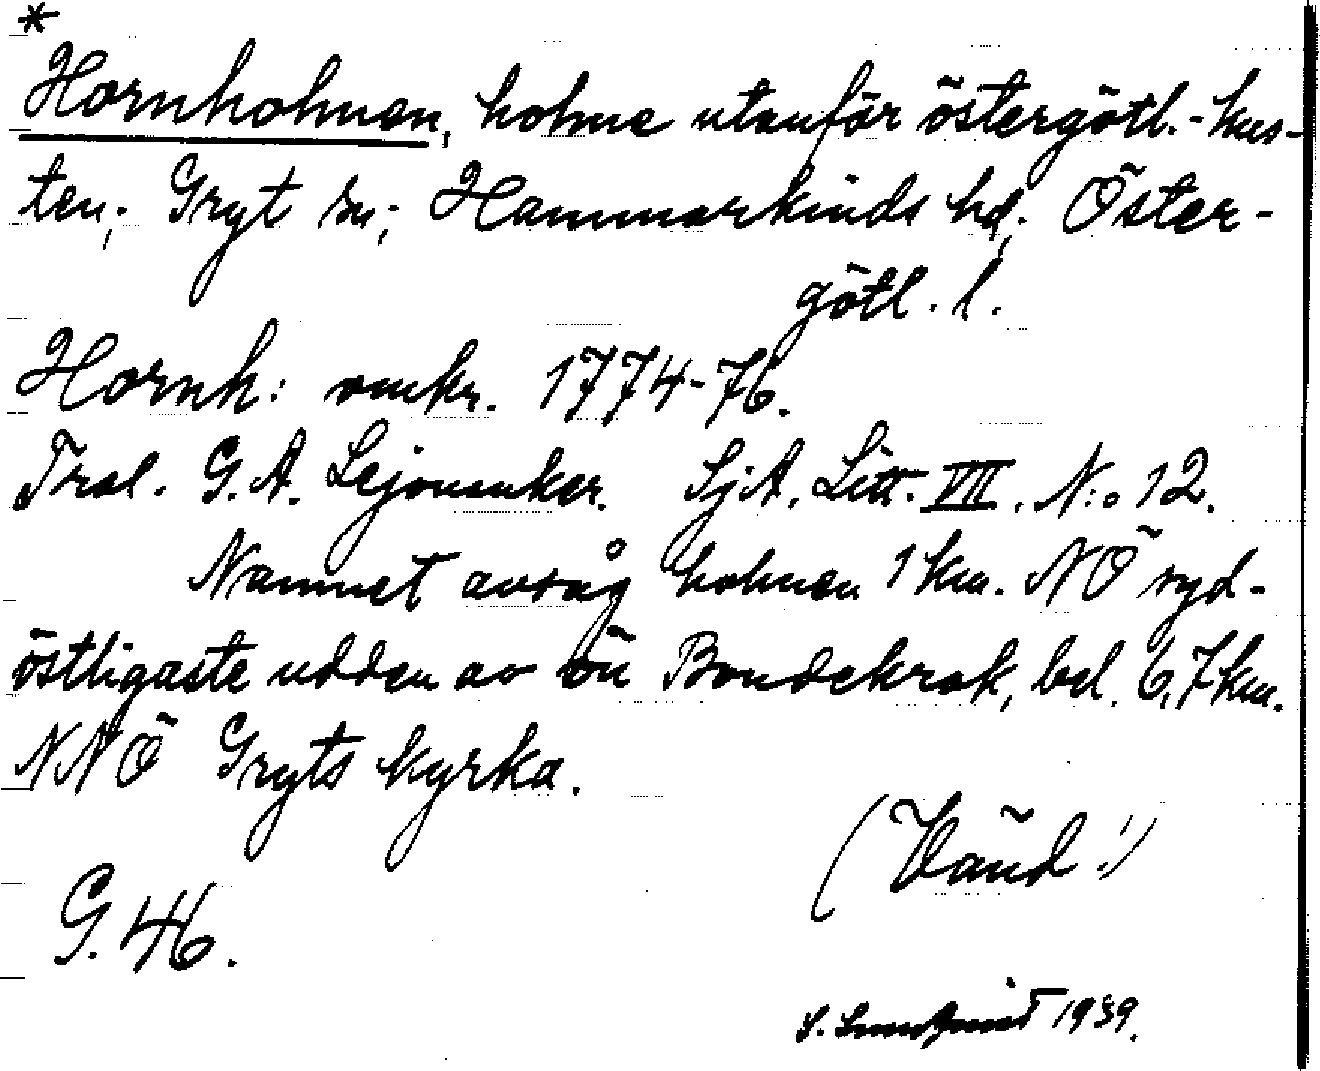 *
Hornholmen, holme utanför östergötl.-kus-
ten, Gryt sn, Hammarkinds hd, Öster-
götl. l.
Hornh: omkr. 1774-76.
Trol. G. A. Lejonanker. SjA. Litt. VIII. N:o 12.
Namnet avsåg holmen 1 km. NÖ syd-
östligaste udden av ön Bondekrok, bel. 6,7 km.
NNÖ Gryts kyrka.
(Vänd!)
G. 46.
S. Lundqvist 1939.